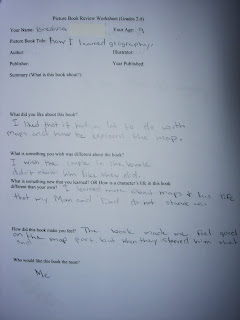 Picture Book Review Worksheet (Grades 2-6)
Your Name:
Your Age: 9
Picture Book Title: how I learned geography
Author:
Illustrator:
Publisher:
Year Published:
Summary (What is this book about?):
What did you like about this book?
I liked that it had a lot to do with
maps and how he explored the map.
What is something you wish was different about the book?
I wish the couple in the book
didn't starve him like they did.
What is something new that you learned? OR How is a character's life in this book
different than your own? I learned more about maps & his life
that my Mom and Dad do not starve me
How did this book make you feel? The book made me feel good
on the map part but when they starved him made
sad
Who would like this book the most?
Me